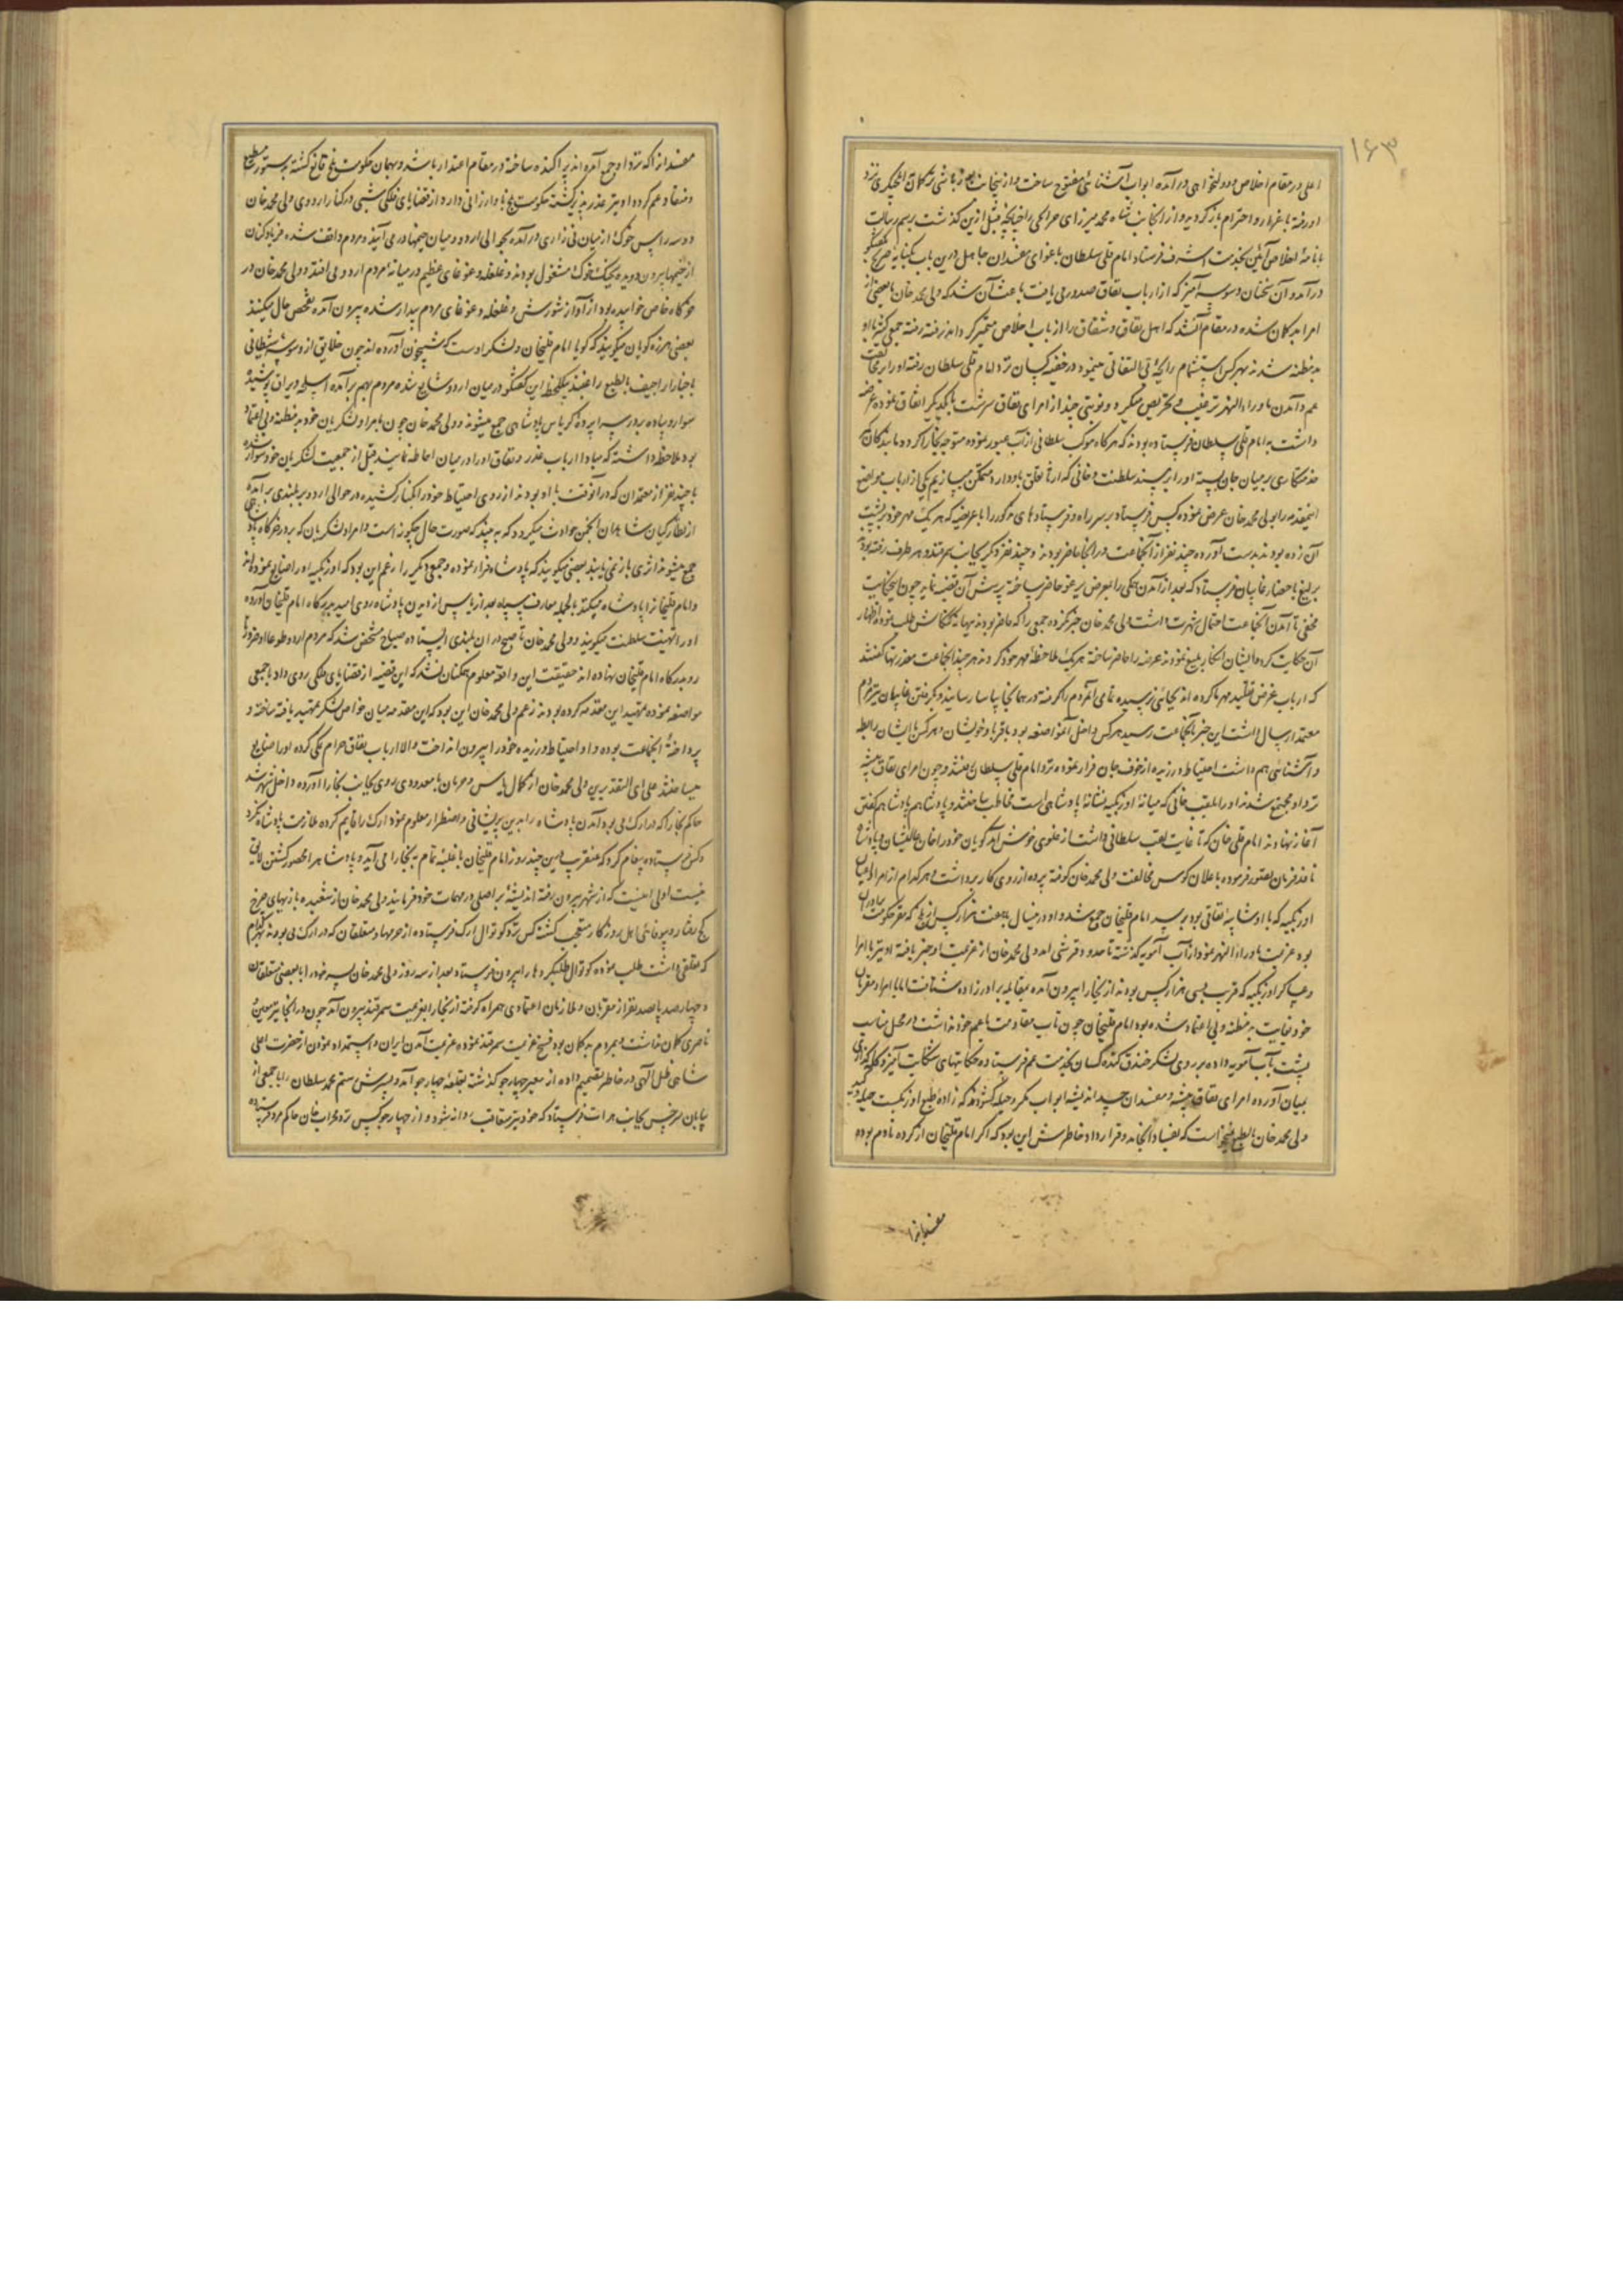 ۱۶۳
اعلی در مقام اخلاص و دولتخواهی درآمده ابواب آشنائی مفتوح ساخت و از ینجانب
او رفته باعزاز و احترام بازگردید و از انجانب شاه محمد میرزای حراکی را چنانچه قبل ازین گذشت برسم رسالت
با نامهٔ اخلاص آئین بخدمت اشرف فرستاد امام قلی سلطان باغوای مفسدان جاهل درین باب بکنایه و صریح گفتگو
درآمد و آن سخنان وسوسه آمیز که از ارباب نفاق صدور می یافت باعث آن شد که ولی محمد خان با بعضی از
امرا بدگمان شده در مقام آن شد که اهل نفاق و شقاق را از ارباب اخلاص متمیز گرداند رفته رفته جمع کثیر با او
بدمظنه شدند بهر کس استشمام رایحهٔ بی التفاتی مینمود در خفیه کسان نزد امام قلی سلطان رفته او را بمخالفت
عم و آمدن ماوراءالنهر ترغیب و تحریص میکرد و نوبتی چند از امرای نفاق سرشت با یکدیگر اتفاق نموده عرضه
داشت به امام قلی سلطان فرستاده بودند که هرگاه موکب سلطانی از آب عبور نموده متوجه بخارا گردد ما بندگان
خدمتکاری بر میان جان بسته او را بر مسند سلطنت و خانی که ارثا تعلق باو دارد متمکن میسازیم یکی از ارباب مواضع
اینمقدمه را بولی محمد خان عرض نموده کس فرستاد بر سر راه و فرستادهای مذکور را با عریضه که هر یک مهر خود بر پشت
آن زده بودند بدست آورده چند نفر از آنجماعت در انجا حاضر بودند و چند نفر دیگر بجانب سمرقند و هر طرف رفته بودند
یرلیغ باحضار غایبان فرستاد که بعد از آمدن همگی را بمعرض حاضر ساخته پرسش آن قضیه نماید چون اینحکایت
مخفی تا آمدن آنجماعت احتمال شهرت داشت ولی محمد خان خبر نکرده جمعی را که حاضر بودند ببهانه کنکاش طلب نموده اظهار
آن حکایت کرد ایشان انکار بلیغ نمودند عرضه را حاضر ساخته هر یک ملاحظهٔ مهر خود کردند هر چند آنجماعت معذرتها گفتند
که ارباب غرض تقلید مهر ما کرده اند بجائی نرسیده تمامی آنمردم را گرفته در همانجا بیاسا رسانید و بگرفتن غایبان نیز مردم
معتمد ارسال داشت این خبر بآنجماعت رسید هر کس داخل آن مواضعه بود با اقربا و خویشان و هر کس با ایشان رابطه
و آشنائی هم داشت احتیاط ورزیده از خوف جان فرار نموده نزد امام قلی سلطان میرفتند و چون امرای نفاق پیشه
نزد او مجتمع شدند او را بلقب خانی که میانه اوزبکیه نشانهٔ پادشاهی است مخاطب ساختند و پادشاهم پادشاهم گفتن
آغاز نهادند امام قلی خان که تا غایت لقب سلطانی داشت از غلوی خوش آمد گویان خود را خان عالیشان و پادشاه
نافذ فرمان تصور فرموده باعلان کوس مخالفت ولی محمد خان کوفته پرده از روی کار برداشت و هر کدام از امرا و اعیان
اوزبکیه که با او شایبهٔ نفاقی بود بر سر امام قلیخان جمع شد و او در خیال سلطنت هزار کس از بلخ که مقر حکومت برادران
بود عزیمت ماوراءالنهر نمود از آب آمویه گذشته تا حدود قرشی آمد ولی محمد خان از عزیمت او خبر یافته او نیز با امرا
و عساکر اوزبکیه که قریب بسی هزار کس بودند از بخارا بیرون آمده بمقابله برادرزاده شتافت اما با امرا و مقربان
خود بغایت بدمظنه و بی اعتماد شده بود امام قلیخان چون تاب مقاومت با عم خود نداشت در محل مناسب
پشت بآب آمویه داده بر روی لشکر خندق کنده کسان بخدمت عم فرستاده حکایتهای شکایت آمیز و گله گذاری
بمیان آورده امرای نفاق پیشه و مفسدان بداندیشه ابواب مکر و حیله گشودند که زادهٔ طبع اوزبکیست
ولی محمد خان بالطبع میخواست که بفساد انجامد و قرارداد خاطرش این بود که اگر امام قلیخان از کرده نادم بوده
مفسدانرا
مفسدانرا که نزد او جمع آمده اند پراکنده ساخته در مقام اعتذار باشد و بهمان حکومت بلخ قانع گشته بدستور مطیع
و منقاد عم گردد او نیز عذرپذیر گشته حکومت بلخ باو ارزانی دارد از قضایای فلکی شبی در کنار اردوی ولی محمد خان
دو سه راس خوک از میان نی زاری درآمده بحوالی اردو و میان خیمها در می آیند و مردم واقف شده فریادکنان
از خیمها بیرون دویده بجنگ خوک مشغول بودند و غلغله و غوغای عظیم در میانهٔ مردم اردو می افتد و ولی محمد خان در
خرگاه خاص خوابیده بود از آواز شورش و غلغله و غوغای مردم بیدار شده بیرون آمده تفحص حال میکند
بعضی هرزه گویان میگویند که گویا امام قلیخان و لشکر اوست که شبیخون آورده اند چون خلایق از وسوسه شیطانی
باخبار اراجیف بالطبع راغبند یکلحظه این گفتگو در میان اردو شایع شده مردم بهم برآمده اسلحه و یراق پوشیده
سوار و پیاده بدور سراپرده و کریاس پادشاهی جمع میشوند و ولی محمد خان چون بامرا و لشکریان خود بدمظنه و بی اعتماد
بود ملاحظه داشته که مبادا ارباب غدر و نفاق او را در میان احاطه نمایند قبل از جمعیت لشکریان خود سوار شده
با چند نفر از معتمدان که در آنوقت با او بودند از روی احتیاط خود را بکنار کشیده در حوالی اردو بر بلندی برآمده
از نظارگیان شاهدان انجمن حوادث میگردد که به بیند که صورت حال چگونه است و امرا و لشکریان که بر در خرگاه پادشاهی
جمع میشوند اثری باز نمی یابند بعضی میگویند که پادشاه فرار نموده و جمعی دیگر را زعم این بود که اوزبکیه او را ضایع نموده اند
و امام قلیخانرا پادشاه میکنند بالجمله معارف سپاه بعد از یاس از دیدن پادشاه روی امید بدرگاه امام قلیخان آورده
او را تهنیت سلطنت میگویند و ولی محمد خان تا صبح در ان بلندی ایستاده صباح مشخص شد که مردم اردو طوعا او کرها
رو بدرگاه امام قلیخان نهاده اند حقیقت این واقعه معلوم همگنان نشد که این قضیه از قضایای فلکی روی داد یا جمعی
مواضعه نموده تمهید این مقدمه کرده بودند زعم ولی محمد خان این بود که این مقدمه میان خواص لشکر تمهید یافته ساخته و
پرداختهٔ آنجماعت بوده و او احتیاط ورزیده خود را بیرون انداخت والا ارباب نفاق حرام نمکی کرده او را ضایع
میساختند علی ای التقدیرین ولی محمد خان از کمال یاس و حرمان با معدودی روی بجانب بخارا آورده داخل شهر شد
حاکم بخارا که در ارک می بود آمدن پادشاه را بدین پریشانی و اضطرار معلوم نمود ارک را قایم کرده ملازمت پادشاه نکرد
و کس فرستاده پیغام کرد که عنقریب همین چند روز امام قلیخان با غلبهٔ تمام به بخارا می آید و پادشاه را محصور گشتن لایق
نیست اولی اینست که از شهر بیرون رفته اندیشهٔ بر اصلی در مهمات خود فرمایند ولی محمد خان از شعبده بازیهای چرخ
کج رفتار و بیوفائی اهل روزگار متعجب گشته کس نزد کوتوال ارک فرستاده از حرمها و متعلقان که در ارک می بودند هر کدام
که تعلقی داشت طلب نموده کوتوال طلب کردها را بیرون فرستاد بعد از سه روز ولی محمد خان پسر خود را با بعضی متعلقان
و چهارصد پانصد نفر از مقربان و ملازمان اعتمادی همراه گرفته از بخارا بعزیمت سمرقند بیرون آمد چون در انجا نیز معین
ناصری گمان نداشت و بمردم بدگمان بود فسخ عزیمت سمرقند نموده عزیمت آمدن ایران و استمداد نمودن از حضرت اعلی
شاهی ظل اللهی در خاطر تصمیم داده از معبر چهارجو گذشته بقلعهٔ چهارجو آمد و پسرش رستم محمد سلطان را با جمعی از
بیابان سرخس بجانب هرات فرستاد که خود نیز متعاقب روانه شود و از چهارجو کس نزد محراب خان حاکم مرو فرستاده